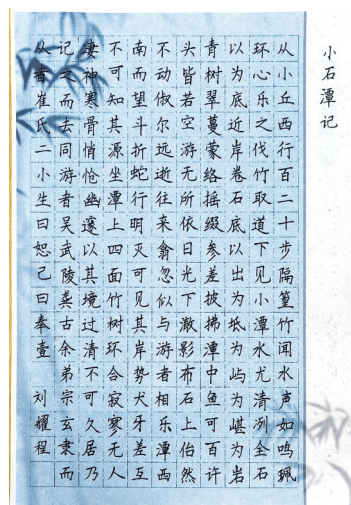 小石潭记
从小丘西行百二十步隔篁竹闻水声如鸣珮
环心乐之伐竹取道下见小潭水尤清冽全石
以为底近岸卷石底以出为坻为屿为嵁为岩
青树翠蔓蒙络摇缀参差披拂潭中鱼可百许
头皆若空游无所依日光下澈影布石上佁然
不动俶尔远逝往来翕忽似与游者相乐潭西
南而望斗折蛇行明灭可见其岸势犬牙差互
不可知其源坐潭上四面竹树环合寂寥无人
凄神寒骨悄怆幽邃以其境过清不可久居乃
记之而去同游者吴武陵龚古余弟宗玄隶而
从者崔氏二小生曰恕己曰奉壹 刘耀程